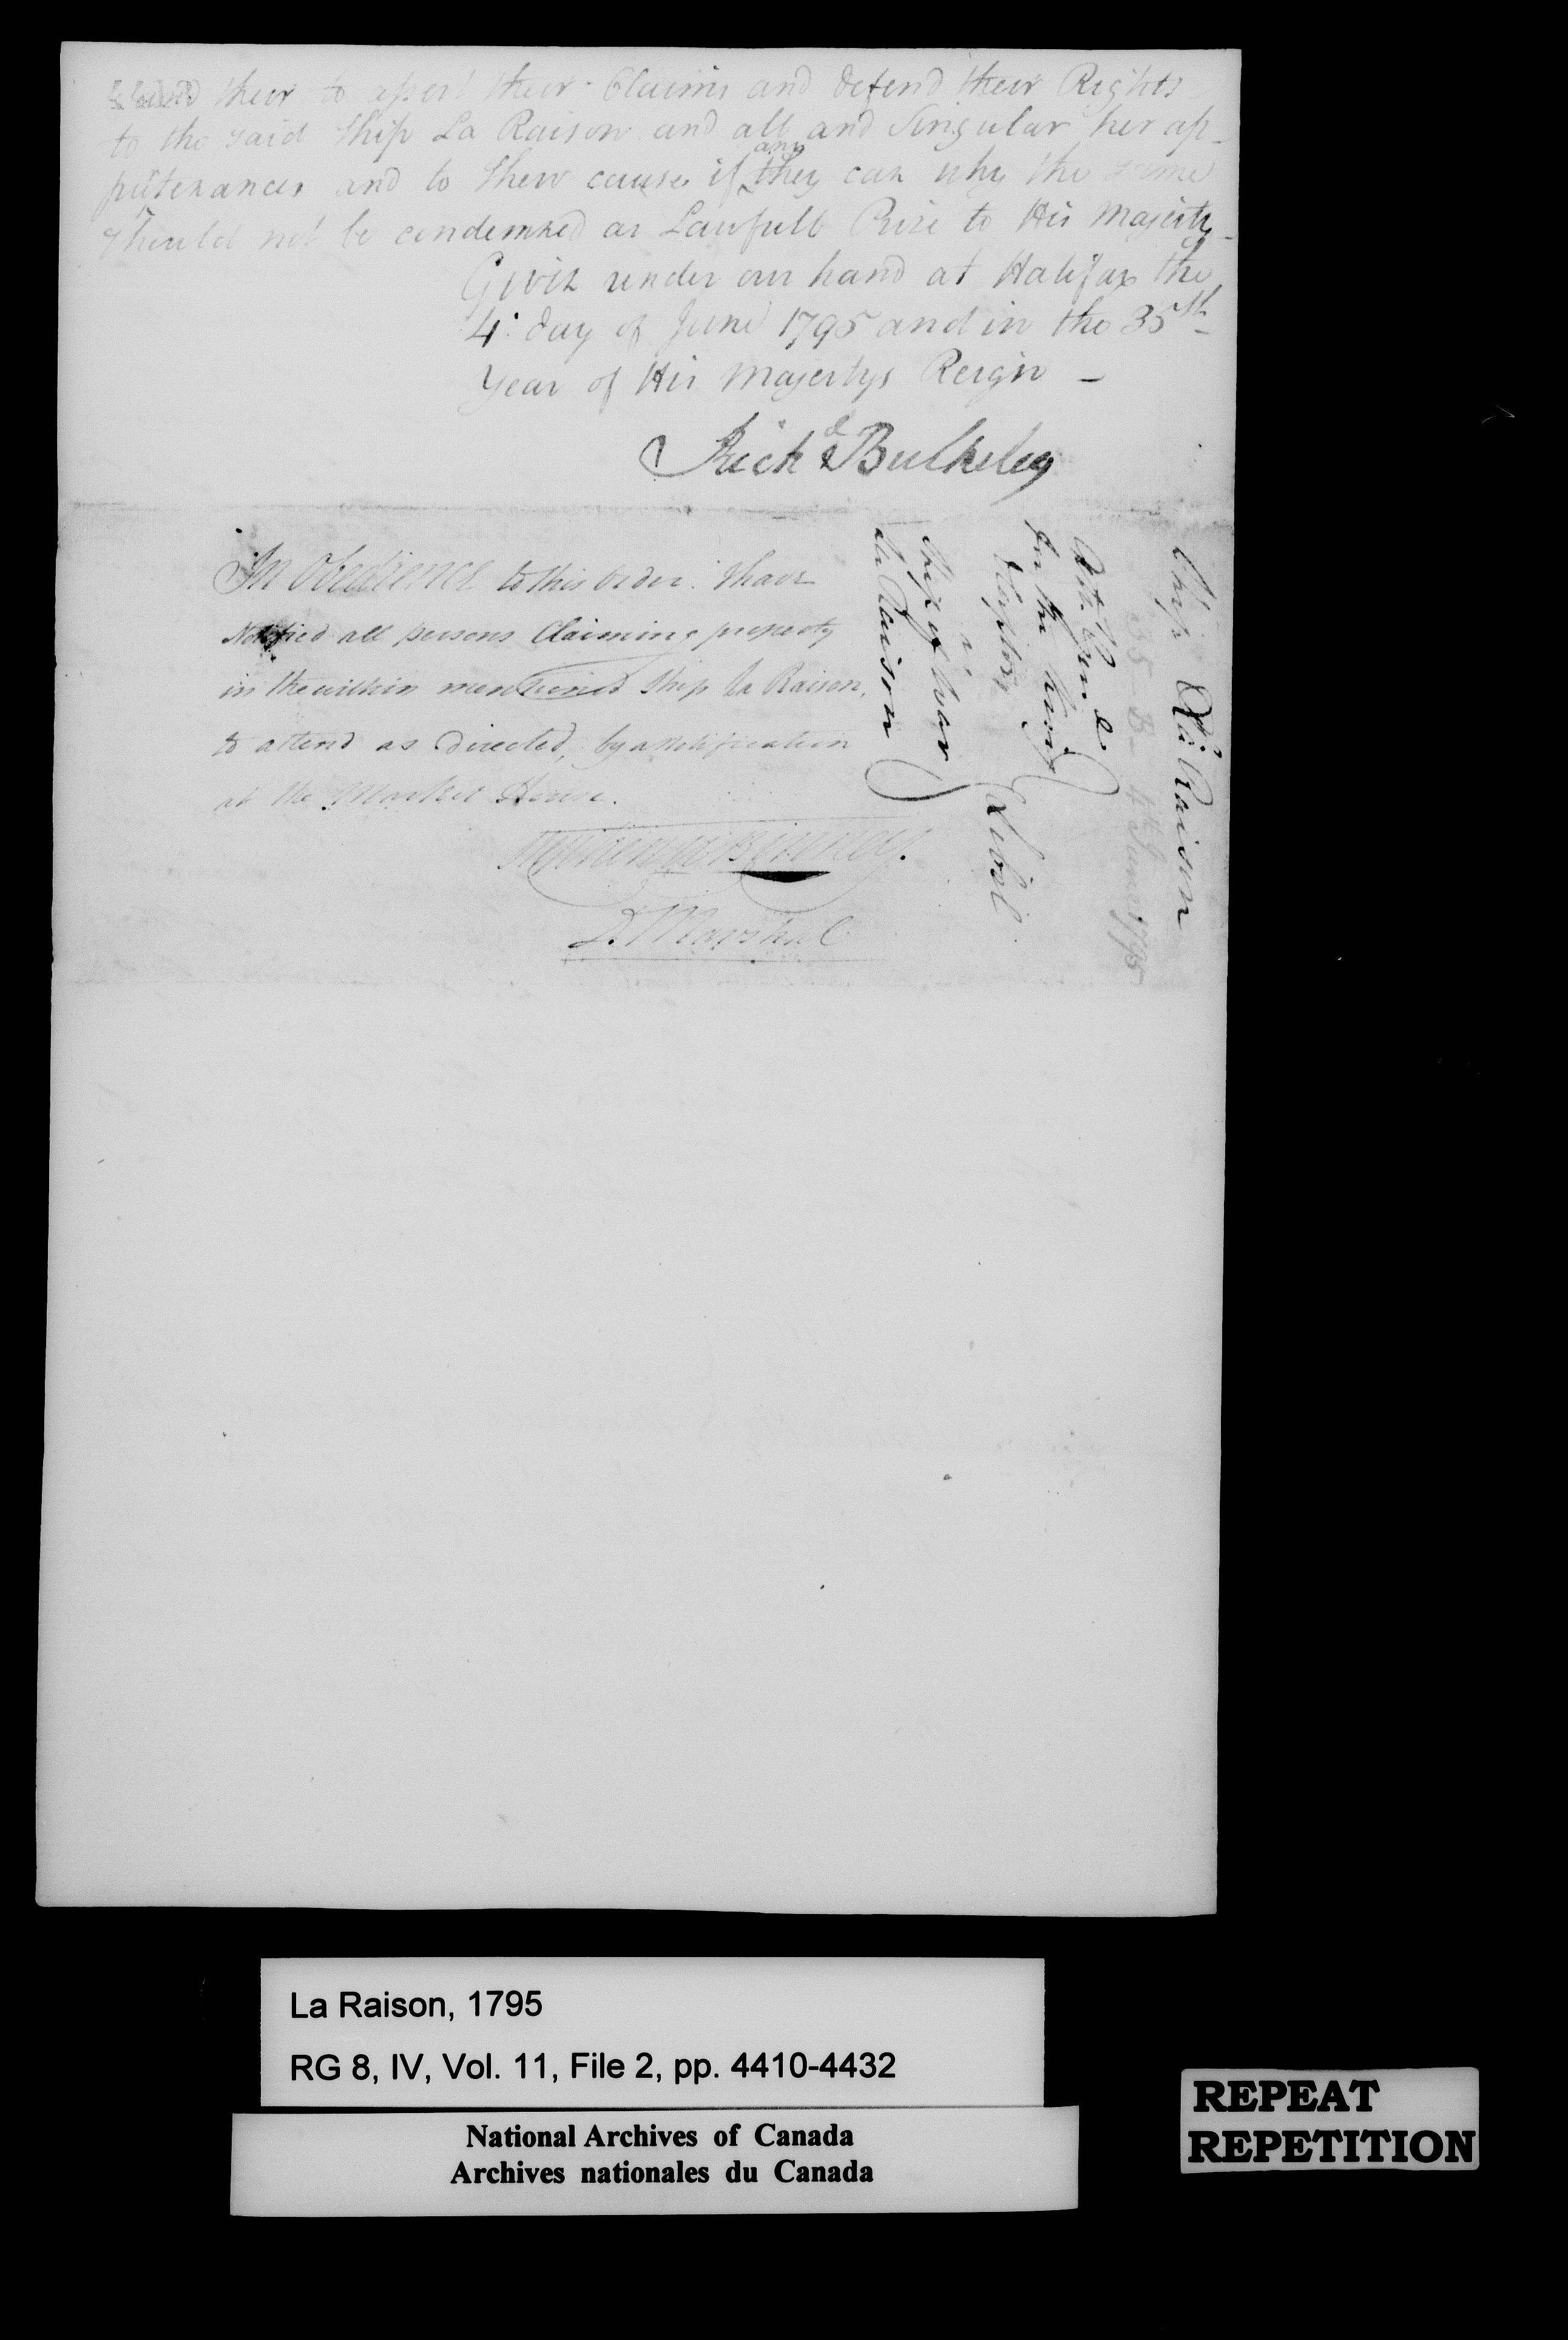 their to assert their Claims and defend their Rights
to the said Ship La Raison and all and Singular her ap-
putenances and to Shew cause if any they can why the same
should not be condemned as Lawfull Prize to His Majesty-
Given under our hand at Halifax the
4. day of June 1795 and in the 35th
Year of His Majestys Reign -
Richd Bulkeley
In Obedience to this order. I have
Notified all persons Claiming property
in the within mentioned Ship La Raison,
to attend as Directed, by a Notification
at the Market House.
D. Marshal
Ship La Raison
4th June 1795
In the King
Libel
vs
Ship of War
La Raison
La Raison, 1795
RG 8, IV, Vol. 11, File 2, pp. 4410-4432
National Archives of Canada
Archives nationales du Canada
REPEAT
REPETITION